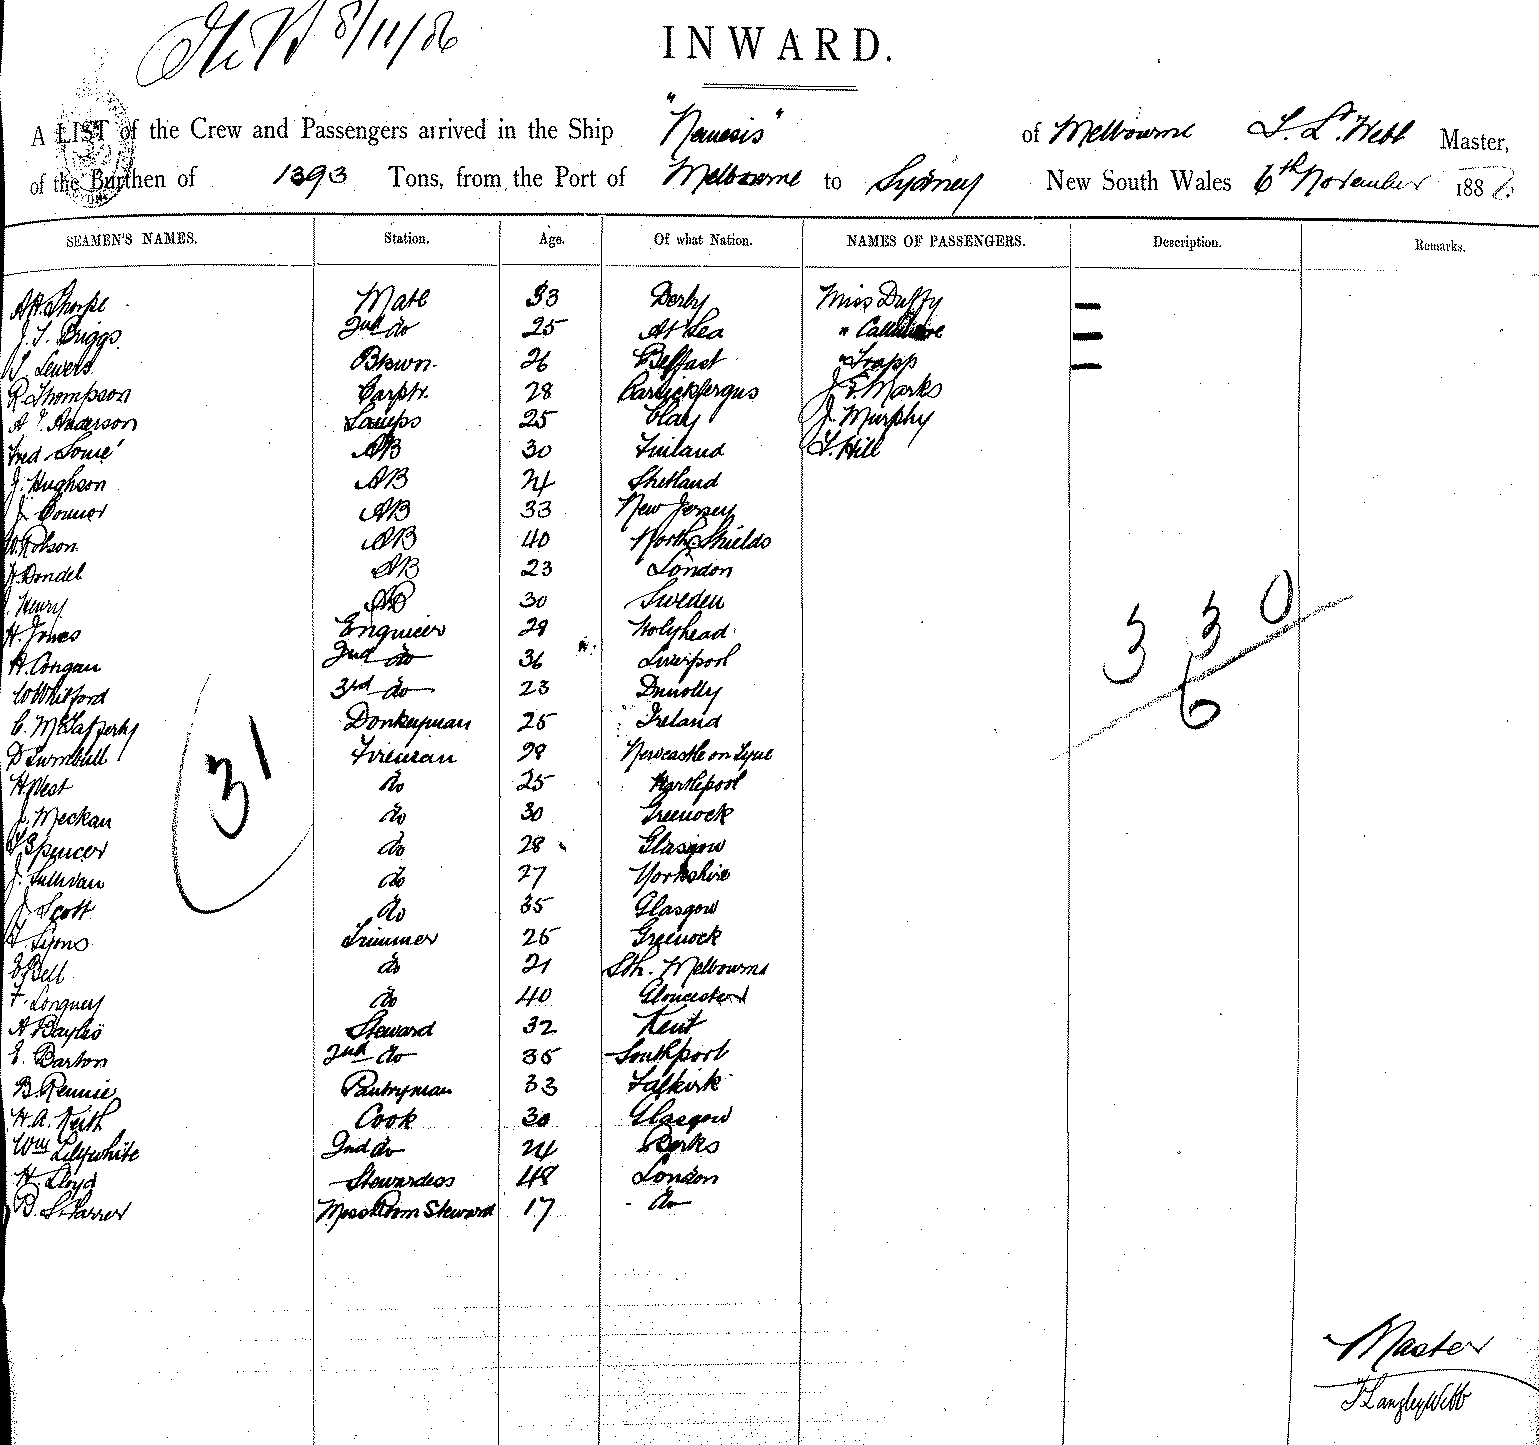 8/11/86
INWARD.
A LIST of the Crew and Passengers arrived in the Ship "Nemesis" of Melbourne T. L. Webb Master,
of the Burthen of 1393 Tons, from the Port of Melbourne to Sydney New South Wales 6th November 1886
SEAMEN'S NAMES. Station. Age. Of what Nation. NAMES OF PASSENGERS. Description. Remarks.
A H. Thorpe Mate 33 Derby Miss Duffy —
J. T. Briggs 2nd do 25 At Sea " —
Lewers Bswn. 26 Belfast " Trapp —
R Thompson Carptr. 28 Carrickfergus J E Marks
A J. Anderson Lamps 25 Clay J. Murphy
Fred AB 30 Finland T. Hill
J. Hughson AB 24 Shetland
J. Connor AB 33 New Jersey
W. Robson AB 40 North Shields
AB 23 London
Henry AB 30 Sweden
H. Jones Engineer 29 Holyhead
H. Congau 2nd do 36 Liverpool
W Whitford 3rd do 23 Dunolly
C. McCafferty Donkeyman 25 Ireland
D Turnbull Fireman 28 Newcastle on Tyne
H West do 25 Hartlepool
J. Meckan do 30 Greenock
T Spencer do 28 Glasgow
J. Sullivan do 27 Yorkshire
J Scott do 35 Glasgow
T. Lyons Trimmer 25 Greenock
E Bell do 21 Sth. Melbourne
F. Longney do 40 Gloucester
A Bayles Steward 32 Kent
E. Barton 2nd do 35 Southport
B. Rennie Pantryman 33 Falkirk
H. A. Keith Cook 30 Glasgow
Wm Lilywhite 2nd do 24 Berks
H Lloyd Stewardess 48 London
B. Starrer Mess Room Steward 17 do
31
3 3 0
6
Master
T Langley Webb